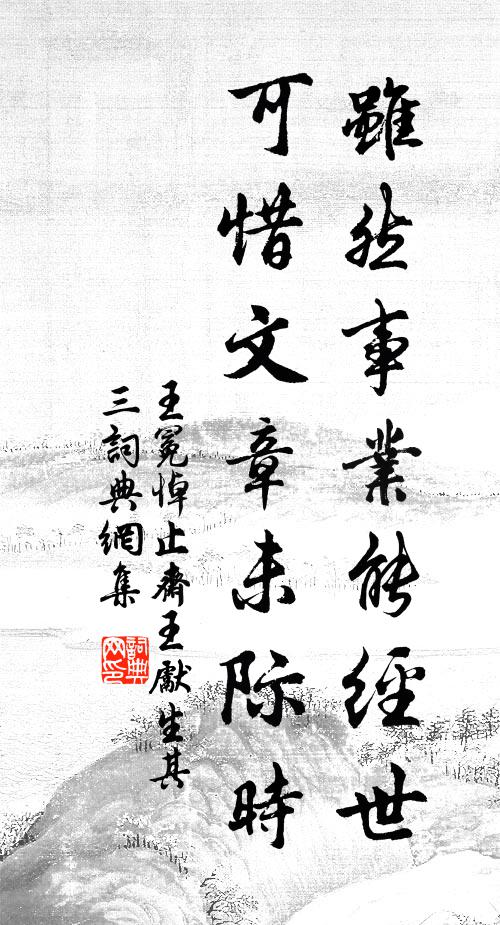 雖然事業能經世
可惜文章未際時
王冕悼止齋王獻生其
三詞典網集
詞典
网印